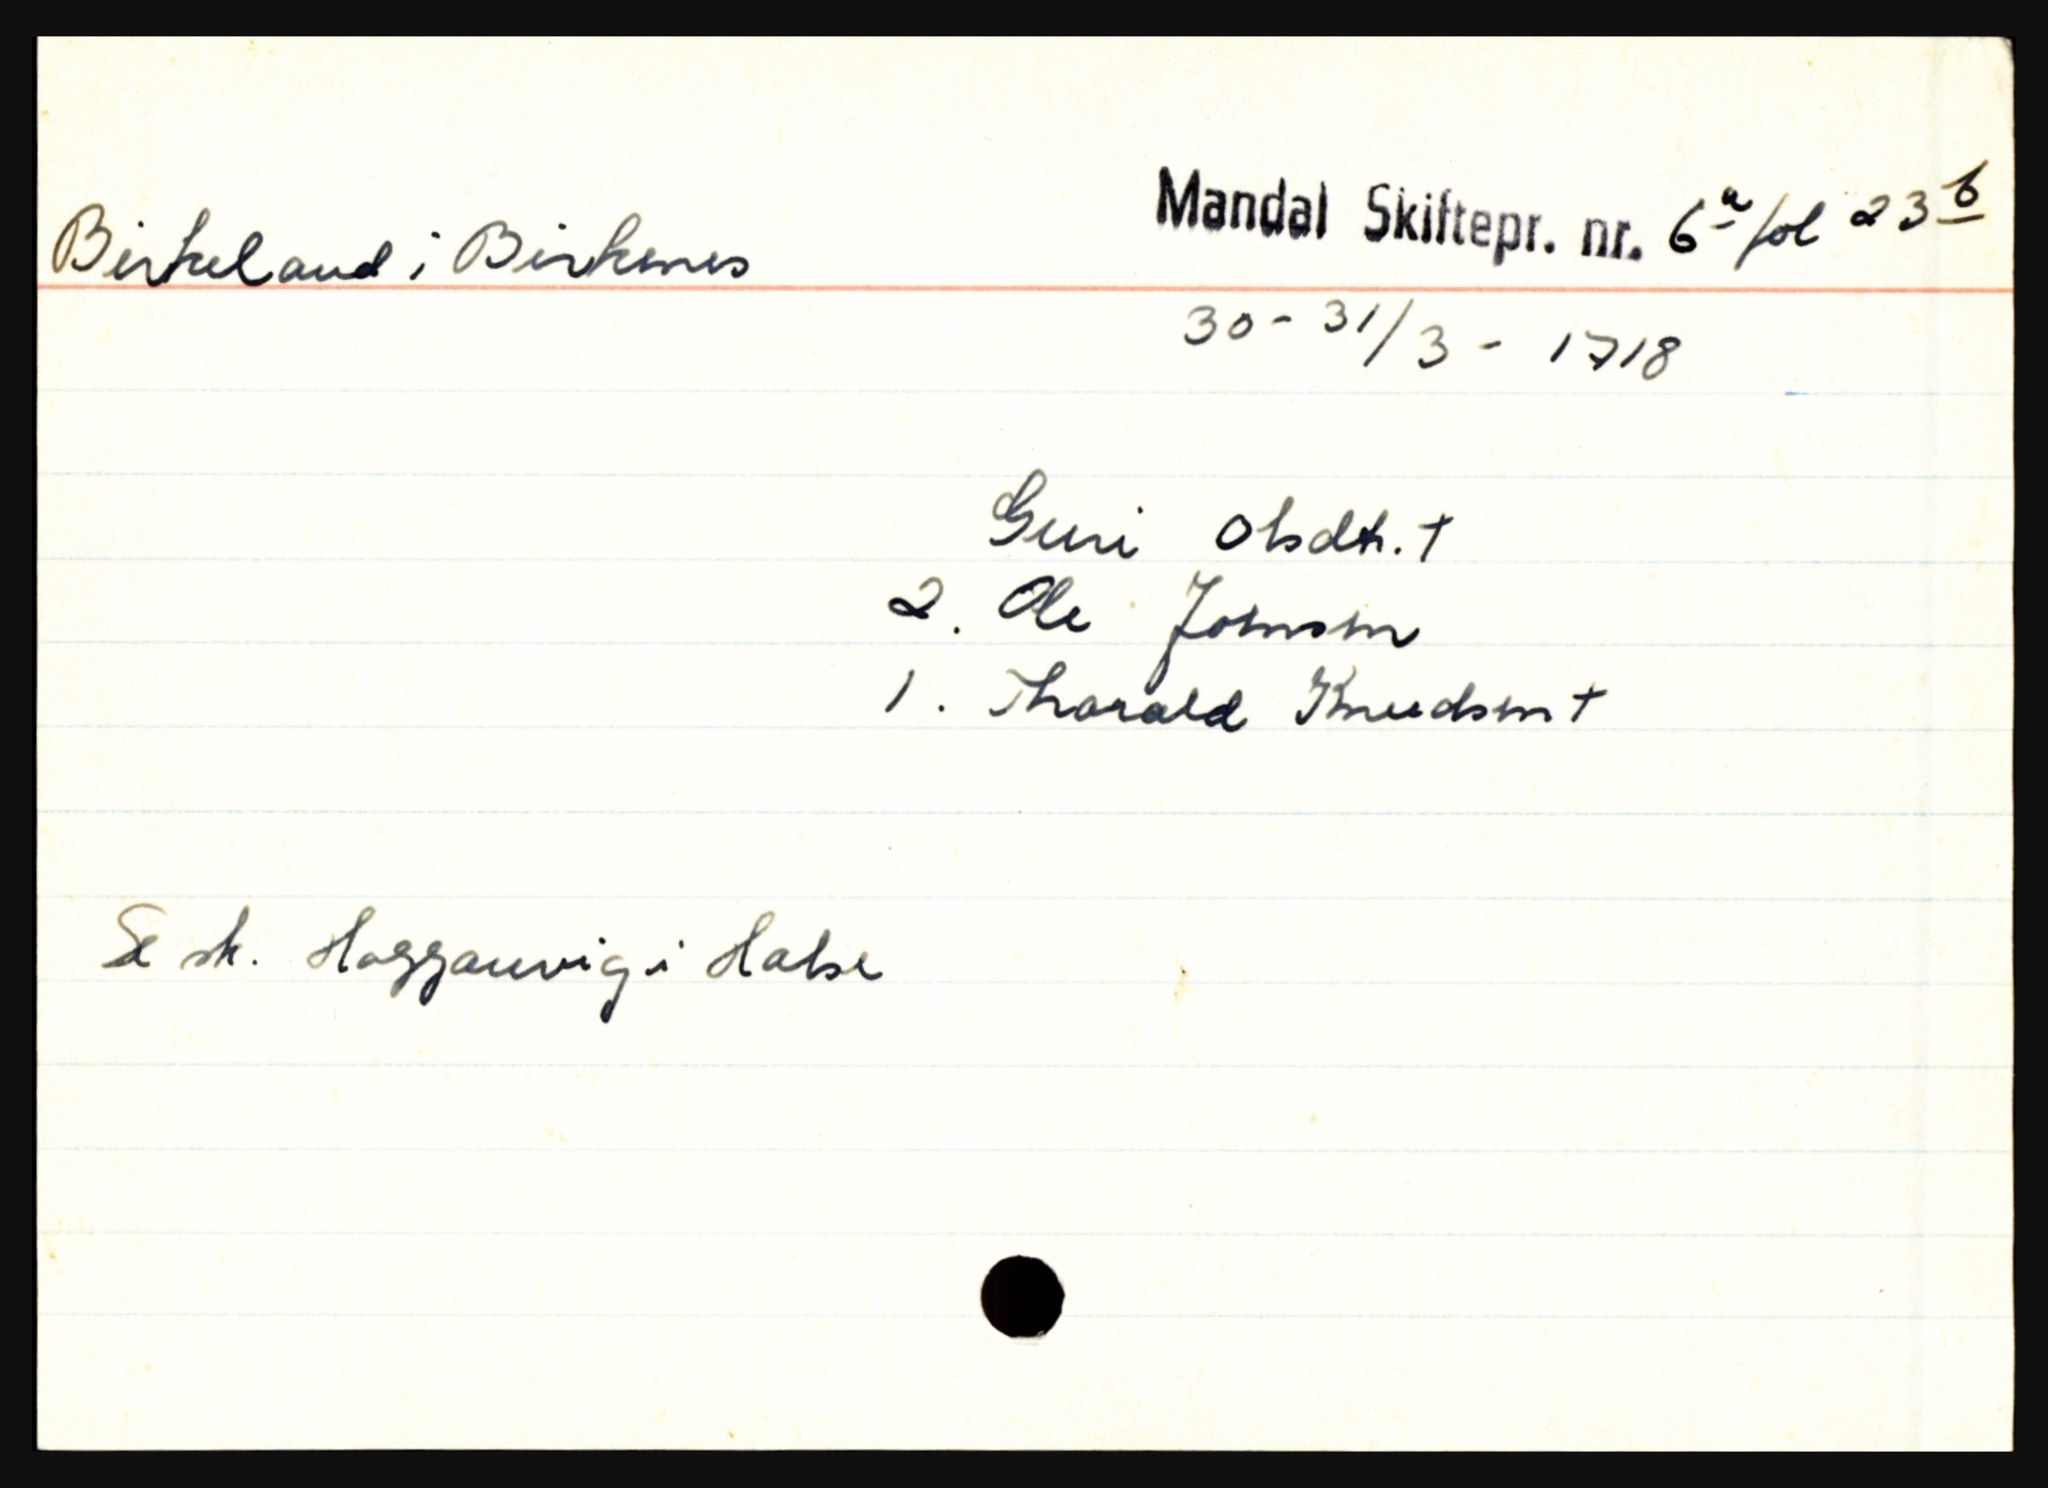 Birkeland i Birkenes
Mandal Skiftepr. nr. 6a fol 23b
30-31/3 - 1718
Guri Olsdtr. †
2. Ole Joensen
1. Tharald Knudsen †
Se sk. Hagganvig i Halse